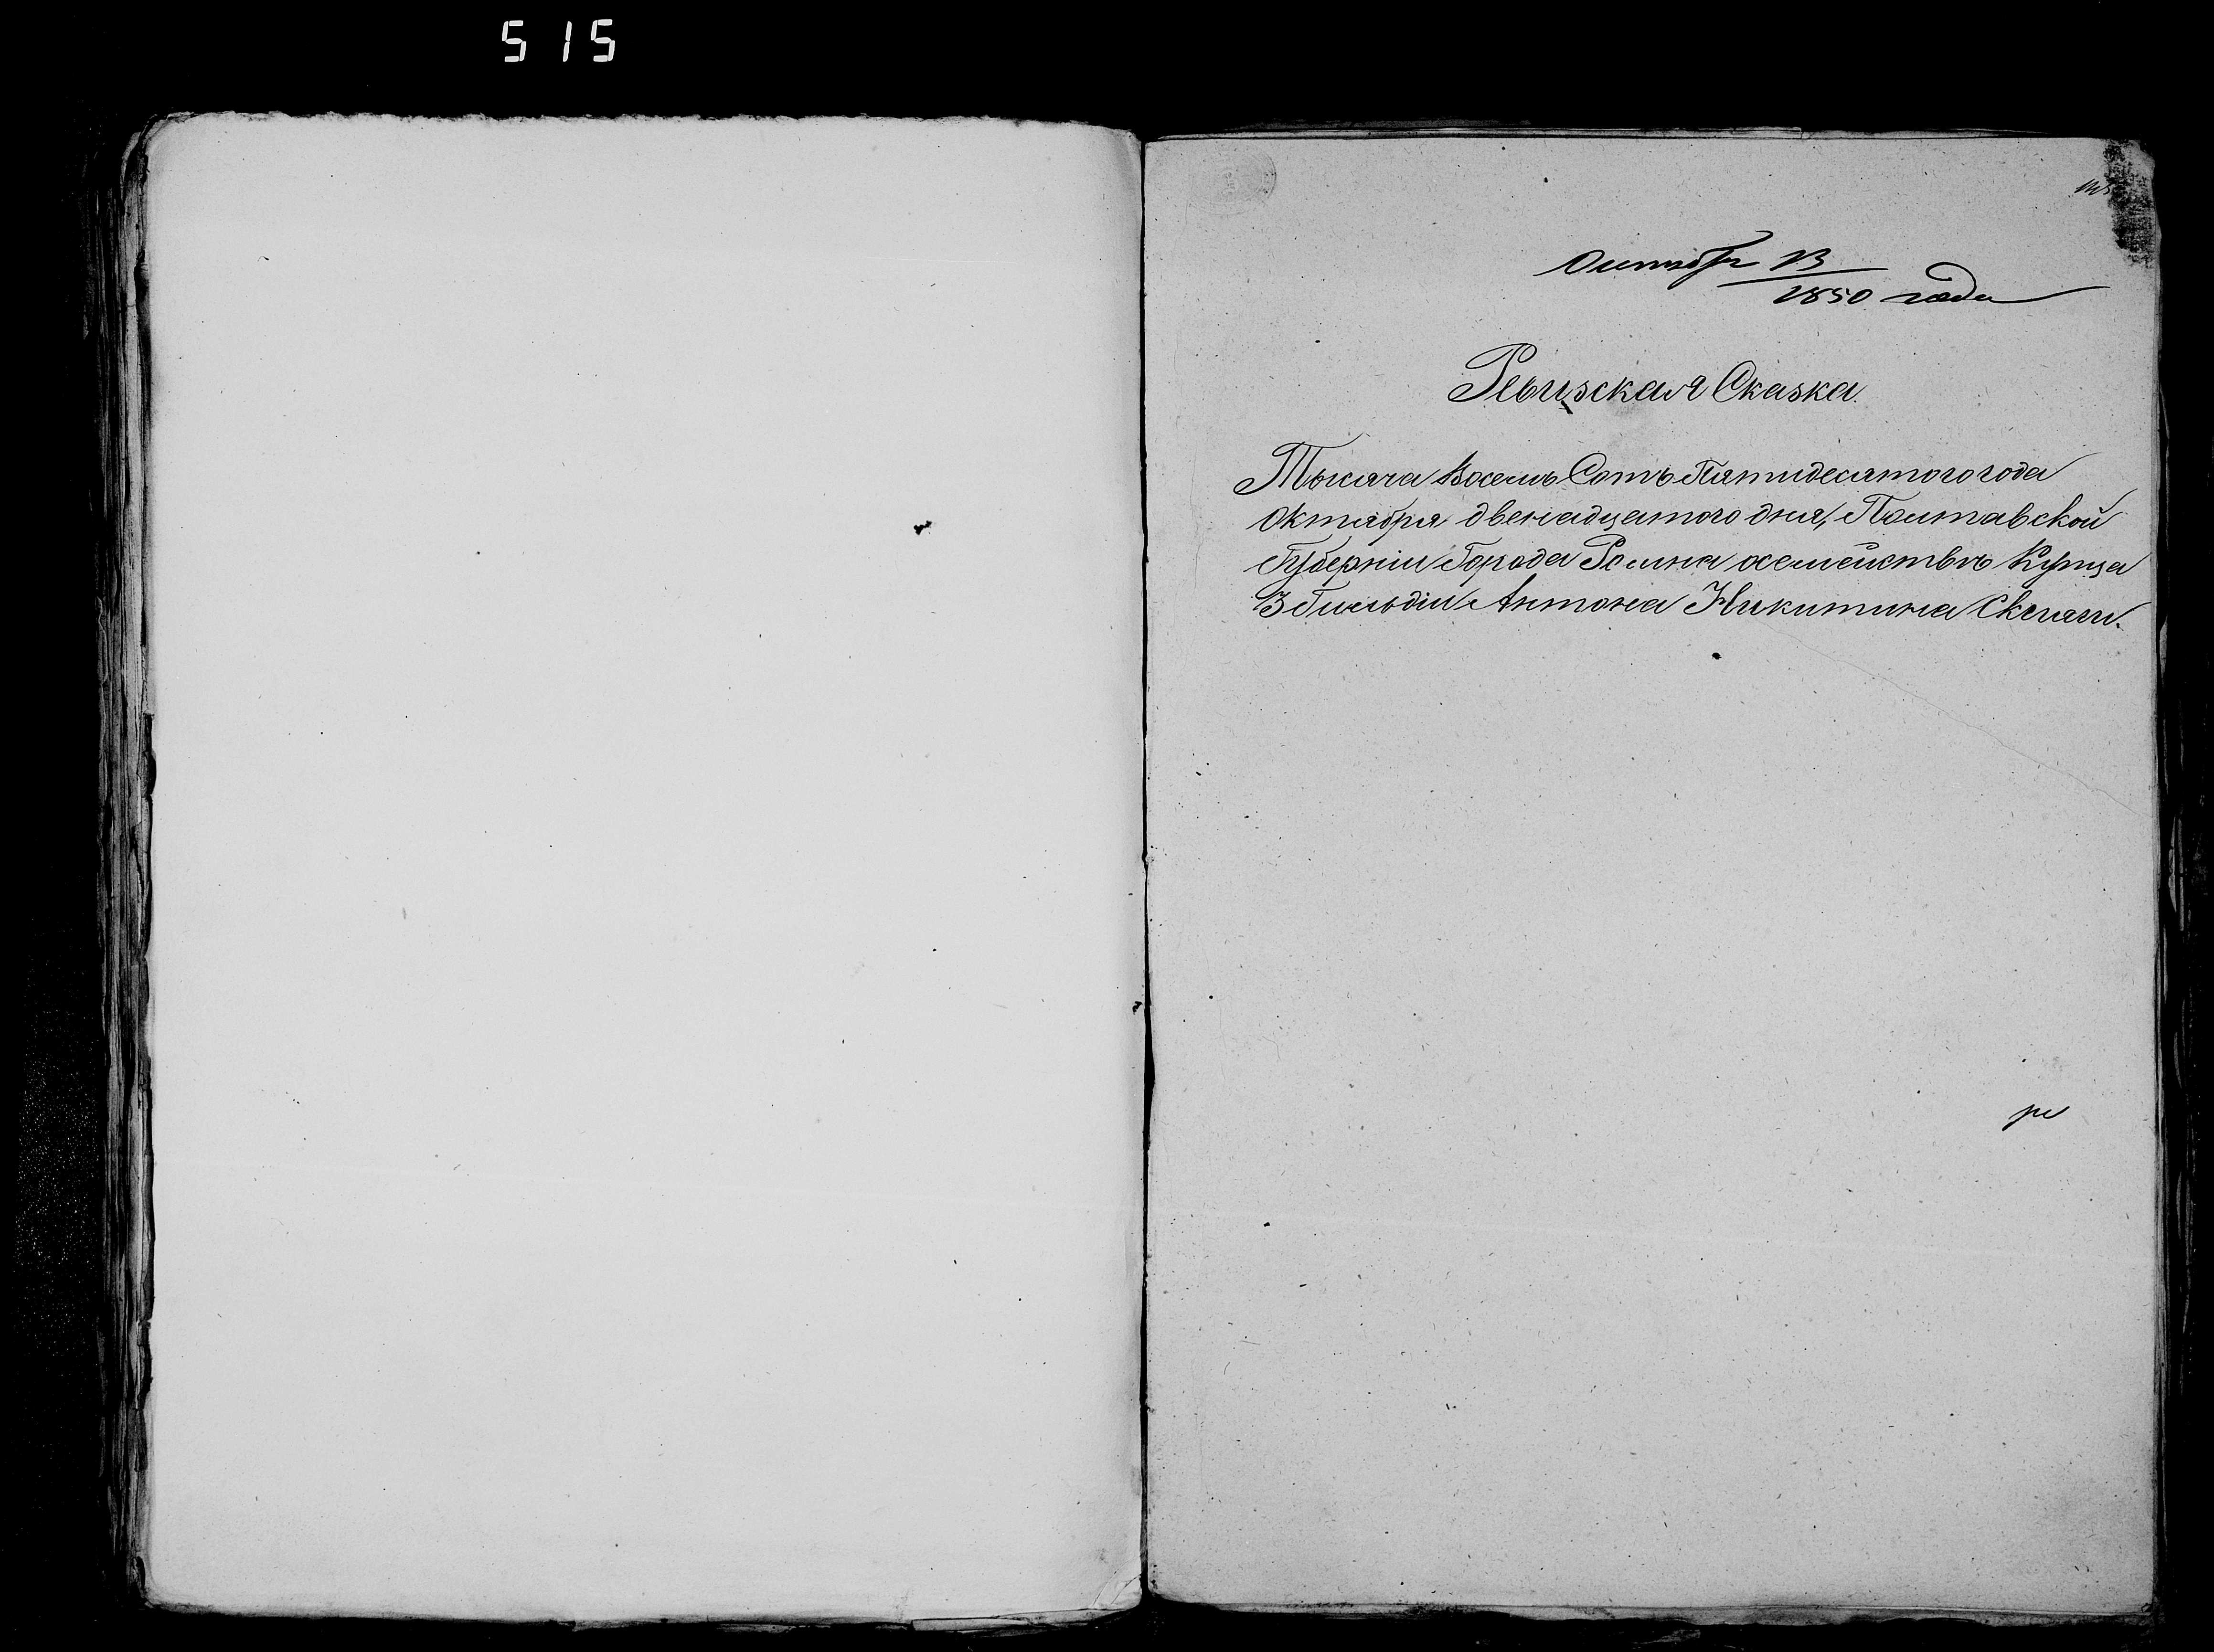 515
Октября 13
1850 года
Ревизская Сказка.
Тысяча Восемь Сотъ Пятидесятого года
Октября двенадцатого дня, Полтавской
Губернiи Города Ромна осемействѣ Купца
3 Гильдiи Антона Никитина